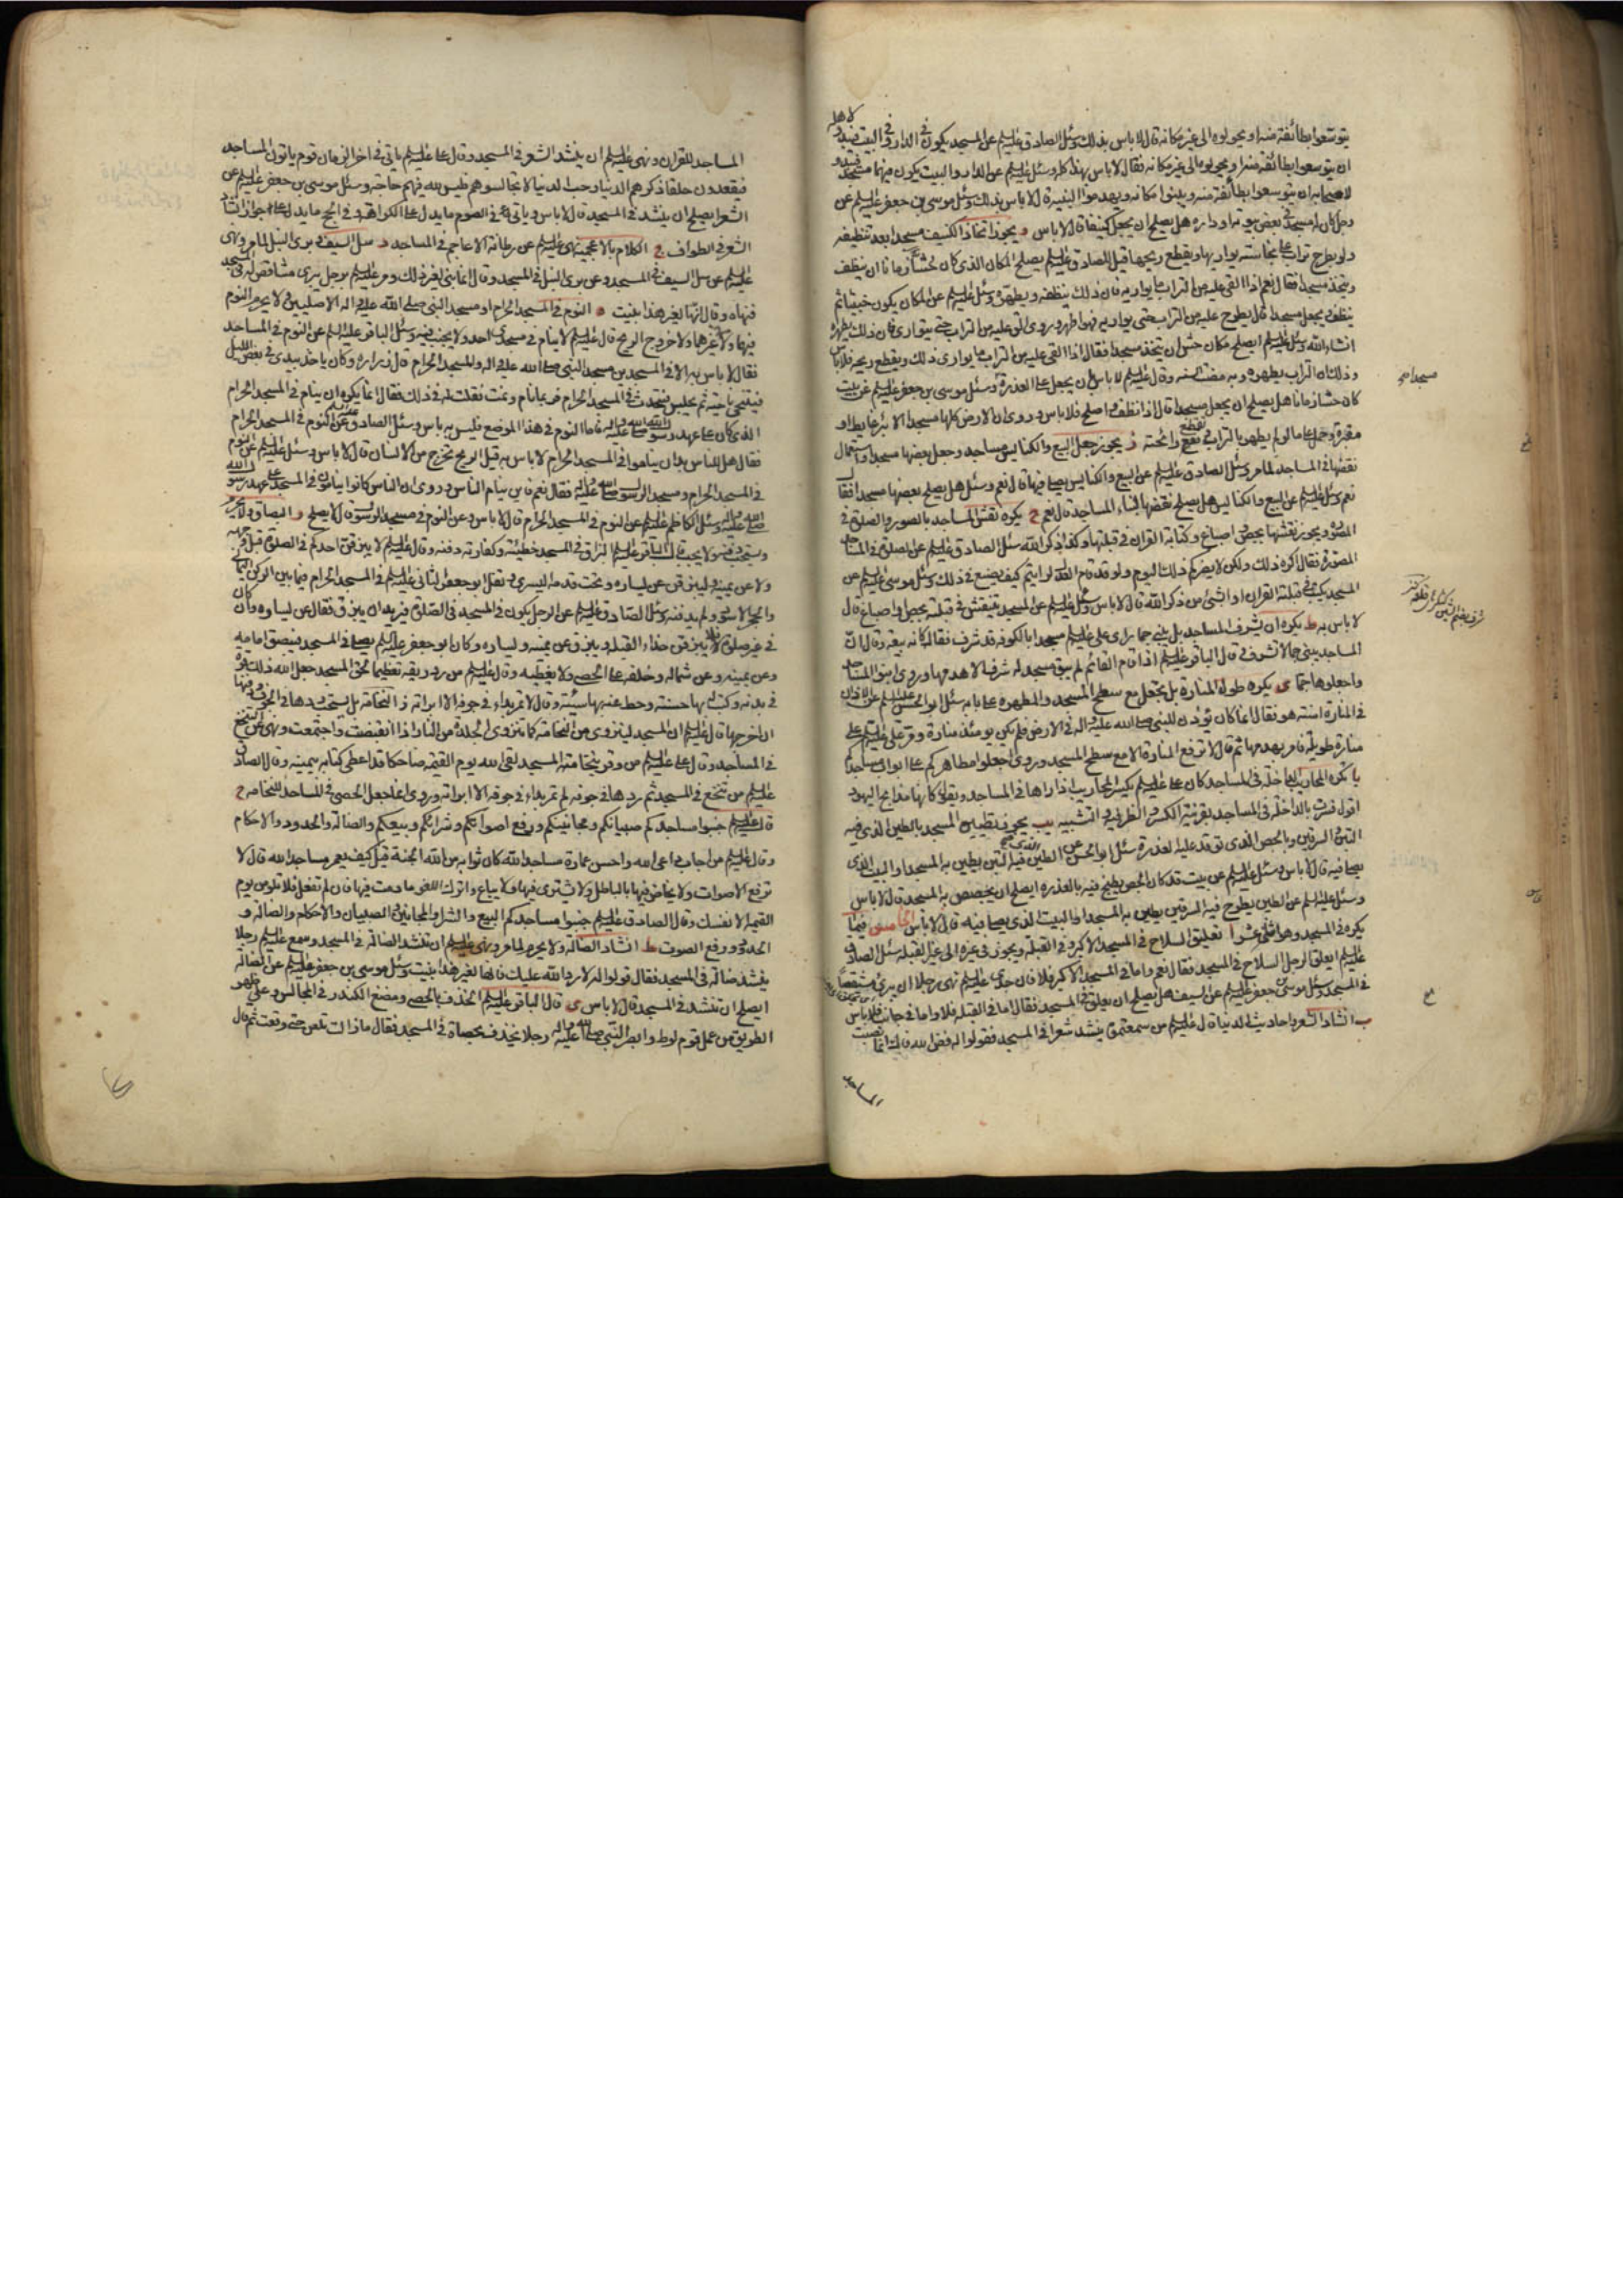 يتوسعوا بطائفة منه او يحولوه الى غير مكانه قال لا باس بذلك وسئل الصادق عليه السلم عن المسجد يكون في الدار وفي البيت فيبدو لاهله
ان يتوسعوا بطائفة منه او يحولوه الى غير مكانه فقال لا باس بهذا كله وسئل عليه السلم عن الدار والبيت يكون فيهما مسجد فيبدو
لاصحابه ان يتوسعوا بطائفة منه ويبنوا مكانه ويهدموا البنية قال لا باس بذلك وسئل موسى بن جعفر عليه السلم عن
رجل كان له مسجد في بعض بيوته او داره هل يصلح ان يجعل كنيفا قال لا باس و يجوز اتخاذ الكنيف مسجدا بعد تنظيفه
ولو بطرح تراب على نجاسته يواريها ويقطع ريحها قيل للصادق عليه السلم يصلح المكان الذي كان حشا زمانا ان ينظف
ويتخذ مسجدا فقال نعم اذا القي عليه من التراب ما يواريه فان ذلك ينظفه ويطهره وسئل عليه السلم عن المكان يكون خبيثا ثم
ينظف ويجعل مسجدا قال يطرح عليه من التراب حتى يواريه فهو اطهر وروي الق عليه من التراب حتى يتوارى فان ذلك يطهره
انشاء الله وسئل عليه السلم ايصلح مكان حش ان يتخذ مسجدا فقال اذا القي عليه من التراب ما يواري ذلك ويقطع ريحه فلا باس
وذلك ان التراب يطهره وبه مضت السنه وقال عليه السلم لا باس بان يجعل على العذرة وسئل موسى بن جعفر عليه السلم عن بيت
كان حشا زمانا هل يصلح ان يجعل مسجدا قال اذا نظف واصلح فلا باس وروي ان الارض كلها مسجد الا بئر غايط او
مقبرة وحمل على ما لم يطهر بالتراب رائحته ز يجوز جعل البيع والكنايس مساجد وجعل بعضها مسجدا واستعمال
نقضها في المساجد لما مر وسئل الصادق عليه السلم عن البيع والكنايس يصلى فيها قال نعم وسئل هل يصلح بعضها مسجدا فقال
نعم وسئل عليه السلم عن البيع والكنايس هل يصلح نقضها لبناء المساجد قال نعم ح يكره نقش المساجد بالصور والصلوة في
المصور ويجوز نقشها بجص او اصباغ وكتابة القران في قبلتها وكذا ذكر الله سئل الصادق عليه السلم عن الصلوة في المساجد
المصورة فقال اكره ذلك ولكن لا يضركم ذلك اليوم ولو قد قام العدل لرايتم كيف يصنع في ذلك وسئل موسى عليه السلم عن
المسجد يكتب في قبلته القران او الشئ من ذكر الله قال لا باس وسئل عليه السلم عن المسجد ينقش في قبلته بجص او اصباغ قال
لا باس به ط يكره ان يشرف المساجد بل يبنى جما راى على عليه السلم مسجدا بالكوفه قد شرف فقال كانه بيعة وقال ان
المساجد يبنى جما لا تشرف وقال الباقر عليه السلم اذا قام القائم لم يبق مسجد له شرف الا هدمها وروي ابنوا المساجد
واجعلوها جما ى يكره طول المنارة بل يجعل مع سطح المسجد والمطهره على بابه سئل ابو الحسن عليه السلم عن الاذان
في المنارة اسنة هو فقال انما كان يؤذن للنبي صلى الله عليه واله في الارض فلم يكن يومئذ منارة ومر على عليه السلم على
منارة طويلة فامر بهدمها ثم قال لا ترفع المنارة الا مع سطح المسجد وروي اجعلوا مطاهركم على ابواب مساجدكم
يا يكره المحاريب الداخلة في المساجد كان على عليه السلم يكسر المحاريب اذا راها في المساجد ويقول كانها مذابح اليهود
اقول فسرت بالداخلة في المساجد بقرينة الكسر والظرفية والتشبيه يب يجوز تطيين المسجد بالطين الذي فيه
التبن والسرقين وبالجص الذي توقد عليه العذرة سئل ابو الحسن عن الطين فيه التبن يطين به المسجد او البيت الذي
يصلى فيه قال لا باس وسئل عليه السلم عن بيت قد كان الجص يطبخ فيه بالعذره ايصلح ان يجصص به المسجد قال لا باس
وسئل عليه السلم عن الطين يطرح فيه السرقين يطين به المسجد او البيت الذي يصلى فيه قال لا باس الخامس فيما
يكره في المسجد وهو اثنى عشر ا تعليق السلاح في المسجد الاكبر وفي القبلة ويجوز في غيره الى غير القبلة سئل الصادق
عليه السلم ايعلق الرجل السلاح في المسجد فقال نعم واما في المسجد الاكبر فلا فان جدي عليه السلم نهى رجلا ان يبري مشقصا
في المسجد وسئل موسى بن جعفر عليه السلم عن السيف هل يصلح ان يعلق في المسجد فقال اما في القبلة فلا واما في جانب فلا باس
ب انشاد الشعر واحاديث الدنيا قال عليه السلم من سمعتموه ينشد شعرا في المسجد فقولوا له فض الله فاك انما نصبت
المساجد
المساجد للقران ونهى عليه السلم ان ينشد الشعر في المسجد وقال على عليه السلم ياتي في اخر الزمان قوم ياتون المساجد
فيقعدون حلقا ذكرهم الدنيا وحب الدنيا لا تجالسوهم فليس لله فيهم حاجة وسئل موسى بن جعفر عليه السلم عن
الشعر ايصلح ان ينشد في المسجد قال لا باس وياتي في الصوم ما يدل على الكراهة وفي الحج ما يدل على جواز انشاد
الشعر في الطواف ج الكلام بالاعجمية نهى عليه السلم عن رطانة الاعاجم في المساجد د سل السيف وبري النبل لما مر ونهى
عليه السلم عن سل السيف في المسجد وعن بري النبل في المسجد وقال انما بني لغير ذلك ومر عليه السلم برجل يبري مشاقص له في المسجد
فنهاه وقال انها لغير هذا بنيت ه النوم في المسجد الحرام او مسجد النبي صلى الله عليه واله الاصليين ولا يحرم النوم
فيهما ولا في غيرهما ولا خروج الريح قال عليه السلم لا ينام في مسجدي احد ولا يجنب فيه وسئل الباقر عليه السلم عن النوم في المساجد
فقال لا باس به الا في المسجدين مسجد النبي صلى الله عليه واله والمسجد الحرام قال زراره وكان ياخذ بيدي في بعض الليل
فيتنحى ناحية ثم يجلس فيتحدث في المسجد الحرام فربما نام ونمت فقلت له في ذلك فقال انما يكره ان ينام في المسجد الحرام
الذي كان على عهد رسول الله صلى الله عليه واله فاما النوم في هذا الموضع فليس به باس وسئل الصادق عليه السلم عن النوم في المسجد الحرام
فقال هل للناس بد ان يناموا في المسجد الحرام لا باس به قيل الريح تخرج من الانسان قال لا باس وسئل عليه السلم عن النوم
في المسجد الحرام ومسجد الرسول صلى الله عليه واله فقال نعم فاين ينام الناس وروي ان الناس كانوا ينامون في المسجد على عهد رسول الله
صلى الله عليه واله وسئل الكاظم عليه السلم عن النوم في المسجد الحرام قال لا باس وعن النوم في مسجد الرسول قال لا يصلح و البصاق ولا يحرم
ويستحب دفنه ولا يجب قال الباقر عليه السلم البزاق في المسجد خطيئة وكفارته دفنه وقال عليه السلم لا يبزقن احدكم في الصلوة قبل وجهه
ولا عن يمينه وليبزقن عن يساره وتحت قدمه اليسرى ونفل ابو جعفر الثاني عليه السلم في المسجد الحرام فيما بين الركن اليماني
والحجر الاسود ولم يدفنه وسئل الصادق عليه السلم عن الرجل يكون في المسجد في الصلوة فيريد ان يبزق فقال عن يساره وان كان
في غير صلوة فلا يبزقن حذاء القبلة ويبزق عن يمينه ويساره وكان ابو جعفر عليه السلم يصلى في المسجد فيبصق امامه
وعن يمينه وعن شماله وخلفه على الحصى ولا يغطيه وقال عليه السلم من رد ريقه تعظيما لحق المسجد جعل الله ذلك قوة
في بدنه وكتب له بها حسنة وحط عنه بها سيئة وقال لا تمر بداء في جوفه الا ابراته ز النخامة بل يستحب ردها في الجوف
قال عليه السلم ان المسجد لينزوي من النخامة كما تنزوي الجلدة من النار اذا انقبضت واجتمعت ونهى عن التنخع
في المساجد وقال على عليه السلم من وقر بنخامته المسجد لقى الله يوم القيمة ضاحكا قد اعطي كتابه بيمينه وقال الصادق
عليه السلم من تنخع في المسجد ثم ردها في جوفه لم تمر بداء في جوفه الا ابراته وروي انما جعل الحصى في المساجد للنخامه ح
قال عليه السلم جنبوا مساجدكم صبيانكم ومجانينكم ورفع اصواتكم وشرائكم وبيعكم والضالة والحدود والاحكام
وقال عليه السلم من اجاب داعى الله واحسن عمارة مساجد الله كان ثوابه من الله الجنة قيل كيف يعمر مساجد الله قال لا
ترفع الاصوات ولا يخاض فيها بالباطل ولا يشترى فيها ولا يباع واترك اللغو ما دمت فيها فان لم تفعل فلا تلومن يوم
القيمة الا نفسك وقال الصادق عليه السلم جنبوا مساجدكم البيع والشراء والمجانين والصبيان والاحكام والضالة و
الحدود ورفع الصوت ط انشاد الضالة ولا يحرم لما مر ونهى عليه السلم ان تنشد الضالة في المسجد وسمع عليه السلم رجلا
ينشد ضالة في المسجد فقال قولوا له لا رد الله عليك فانها لغير هذا بنيت وسئل موسى بن جعفر عليه السلم عن الضالة
ايصلح ان تنشد في المسجد قال لا باس ى قال الباقر عليه السلم الخذف بالحصى ومضغ الكندر في المجالس وعلى ظهر
الطريق من عمل قوم لوط وابصر النبي صلى الله عليه واله رجلا يخذف بحصاة في المسجد فقال ما زالت تلعن حتى وقعت ثم قال